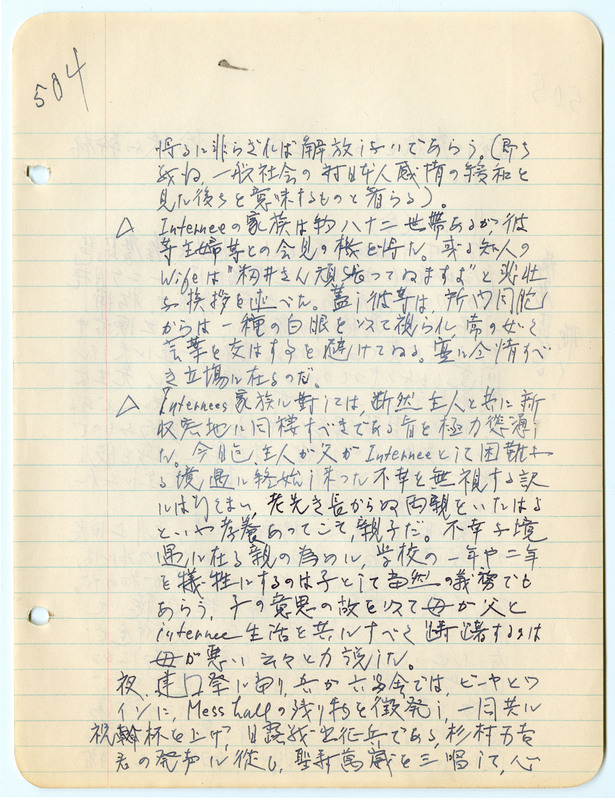 504
得るに非らざれば解放しないであらう。(即ち
戦ね 一般社会の対日本人感情の緩和を
見た後ちを意味するものと看らる)。
△ Interneeの家族は約八十二世帯あるが、彼
等主婦等との会見の機を得た。或る知人の
Wifeは"籾井さん頑張ってゐますよ"と悲壮
な挨拶を述べた。蓋し彼等は、所内同胞
からは一種の白眼を以て視られ、常の如く
言葉を交はすを避けてゐる。寔に同情すべ
き立場に在るのだ。
△ Internees家族に対しては、断然主人と共に新
収容地に同棲すべきである旨を極力慫慂し
た。今日迄、主人が父がInterneeとして困難な
る境遇に終始し来った不幸を無視する訳
にはゆくまい、老先き長からぬ両親をいたはる
といふ孝養あってこそ、親子だ。不幸な境
遇に在る親の為めに、学校の一年や二年
を犠牲にするのは子として当然の義務でも
あらう、子の意思の故を以て母が父と
internee生活を共にすべく躊躇するは
母が悪い云々と力説した。
夜、建口挙に当り、吾が六号舎では、ビーヤとワ
インに、Mess hallの残り物を徴発し、一同共に
祝幹杯を上げ、日露戦出征兵である、杉村万吉
君の発声に従ひ、聖寿萬歳を三唱して、心